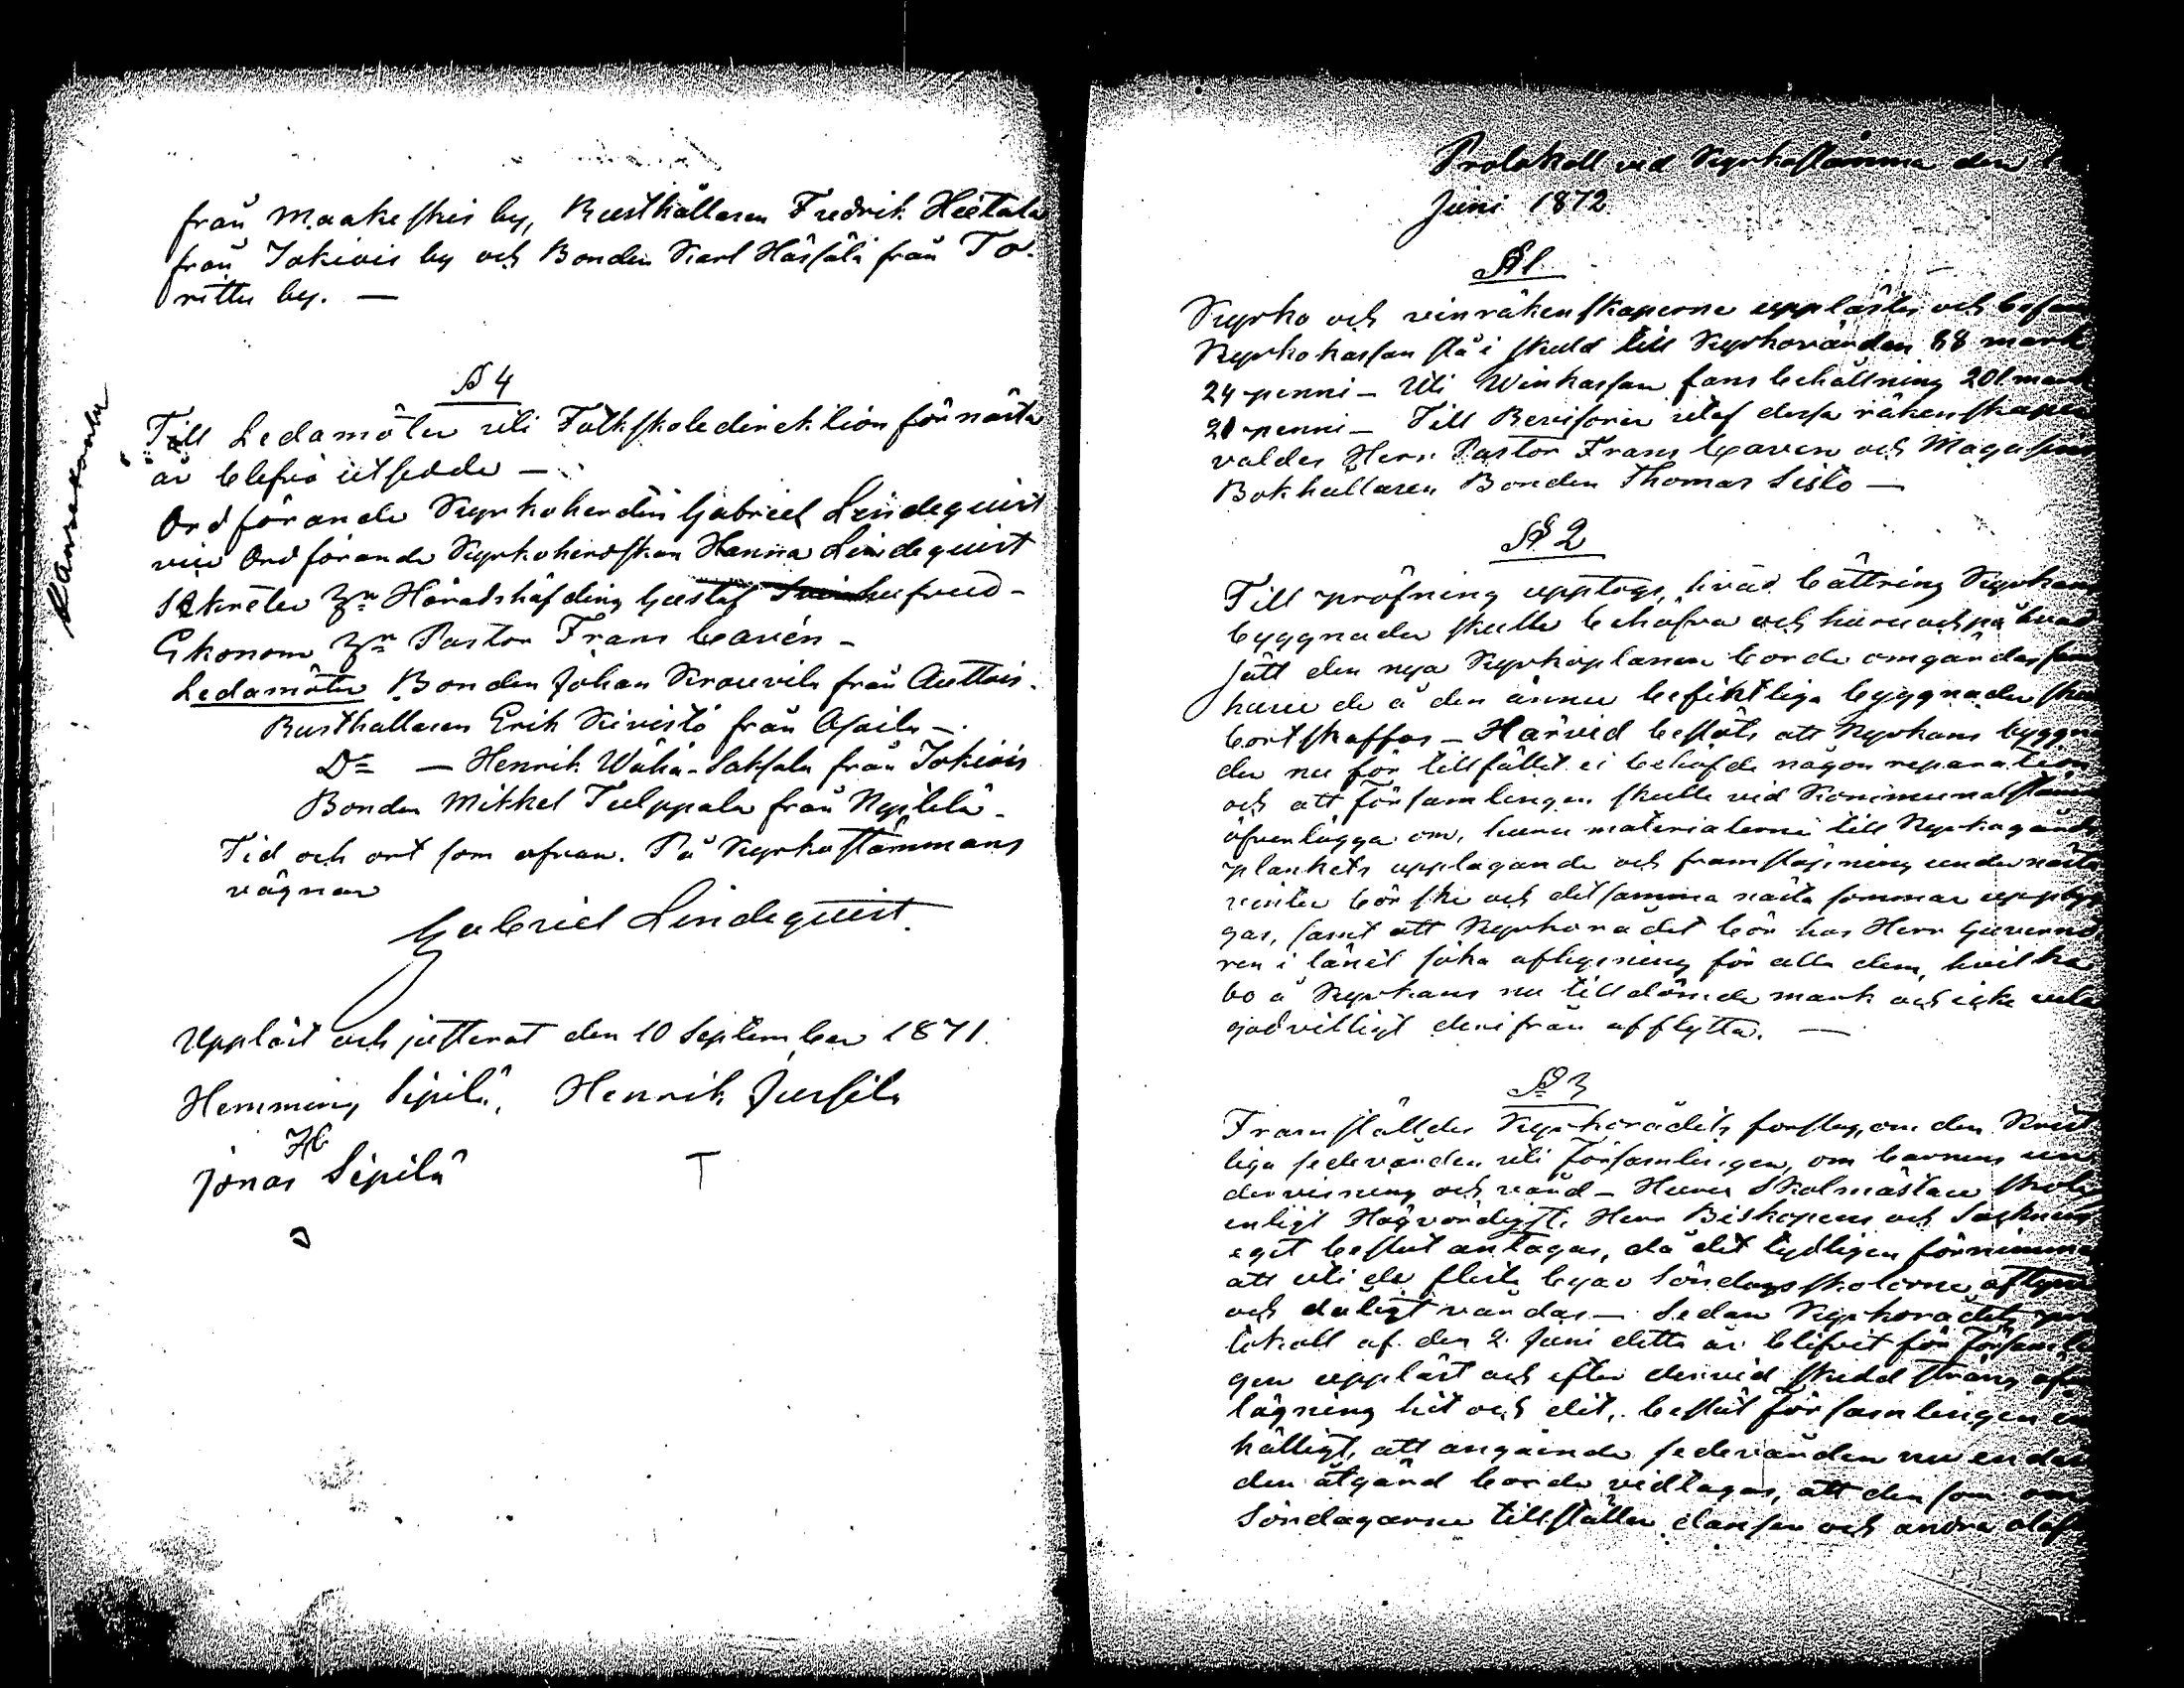 från Maakeskis by, Rusthållaren Fredrik Hietala
från Jokiois by och Bonden Karl Hässälä från To-
rittu by. —
§ 4
Till Ledamöter uti Folkskoledirektion för nästa
år blefvo utsedde —
Ordförande Kyrkoherden Gabriel Lindequist
vice Ordförande Kyrkoherdskan Hanna Lindequist
Sekreter Hr Häradshöfding Gustaf Svinhufvud -
Ekonom Hr Pastor Frans Caven -
Ledamöter Bonden Johan Krouvila från Auttois.
Rusthållaren Erik Kivistö från Apaila -
Do — Henrik Wähä-Saksala från Jokiois
Bonden Mikkel Tulppala från Nyilelä -
Tid och ort som ofvan. På Kyrkostämmans
vägnar
Gabriel Lindequist.
Uppläst och justerat den 10 September 1871.
Hemming Sipilä, Henrik Jussila
Jonas Sipilä
Protokoll vid Kyrkostämma den
Juni 1872
§ 1
Kyrko och vinräkenskaperne upplästes och befan
Kyrkokassan stå i skuld till Kyrkovärden 88 mark
24 penni - Uti Winkassan fans behållning 201 mark
21 penni - Till Revisorer utaf dessa räkenskaper
valdes Herr Pastor Frans Caven och Magasins
Bokhållaren Bonden Thomas Sisto —
§ 2
Till pröfning upptogs, hvad bättring Kyrkans
byggnader skulle behöfva och huru och på hvad
sätt den nya Kyrkoplanen borde omgärdas samt
huru de å den ännu befintliga byggnader ska
bortskaffas - Härvid beslöts att Kyrkans byggna
der nu för tillfället ei behöfde någon reparation
och att Församlingen skulle vid Kommunalstämma
öfverlägga om, huru materialerne till Kyrkogårds
plankets upptagande och framsläpning under nästa
vinter bör ske och det samma nästa sommar uppbyg
gas, samt att Kyrkorådet bör hos Herr Guvernö
ren i länet söka aflysning för alla dem, hvilka
bo å Kyrkans nu tilldömde mark och icke vela
godvilligt derifrån afflytta. —
§ 3
Framställdes Kyrkorådets förslag, om den Krist
liga sedevården uti Församlingen, om barnens un
dervisning och vård - Huru Skolmästare skola
enligt Högvördigste Herr Biskopens och Socknens
eget beslut antagas, då det tydligen förnimmes
att uti de flesta byar Söndagsskolorne aftyna
och dåligt vårdas — Sedan Kyrkorådets pro
tokoll af den 2 Juni detta år blifvit för Församlin
gen uppläst och efter dervid skedd sträng öfver
lägning hit och dit, beslöt församlingen en
hälligt, att angående sedevården nu endast
den åtgärd borde vidtagas, att den som om
Söndagarne tillställer dansen och andra